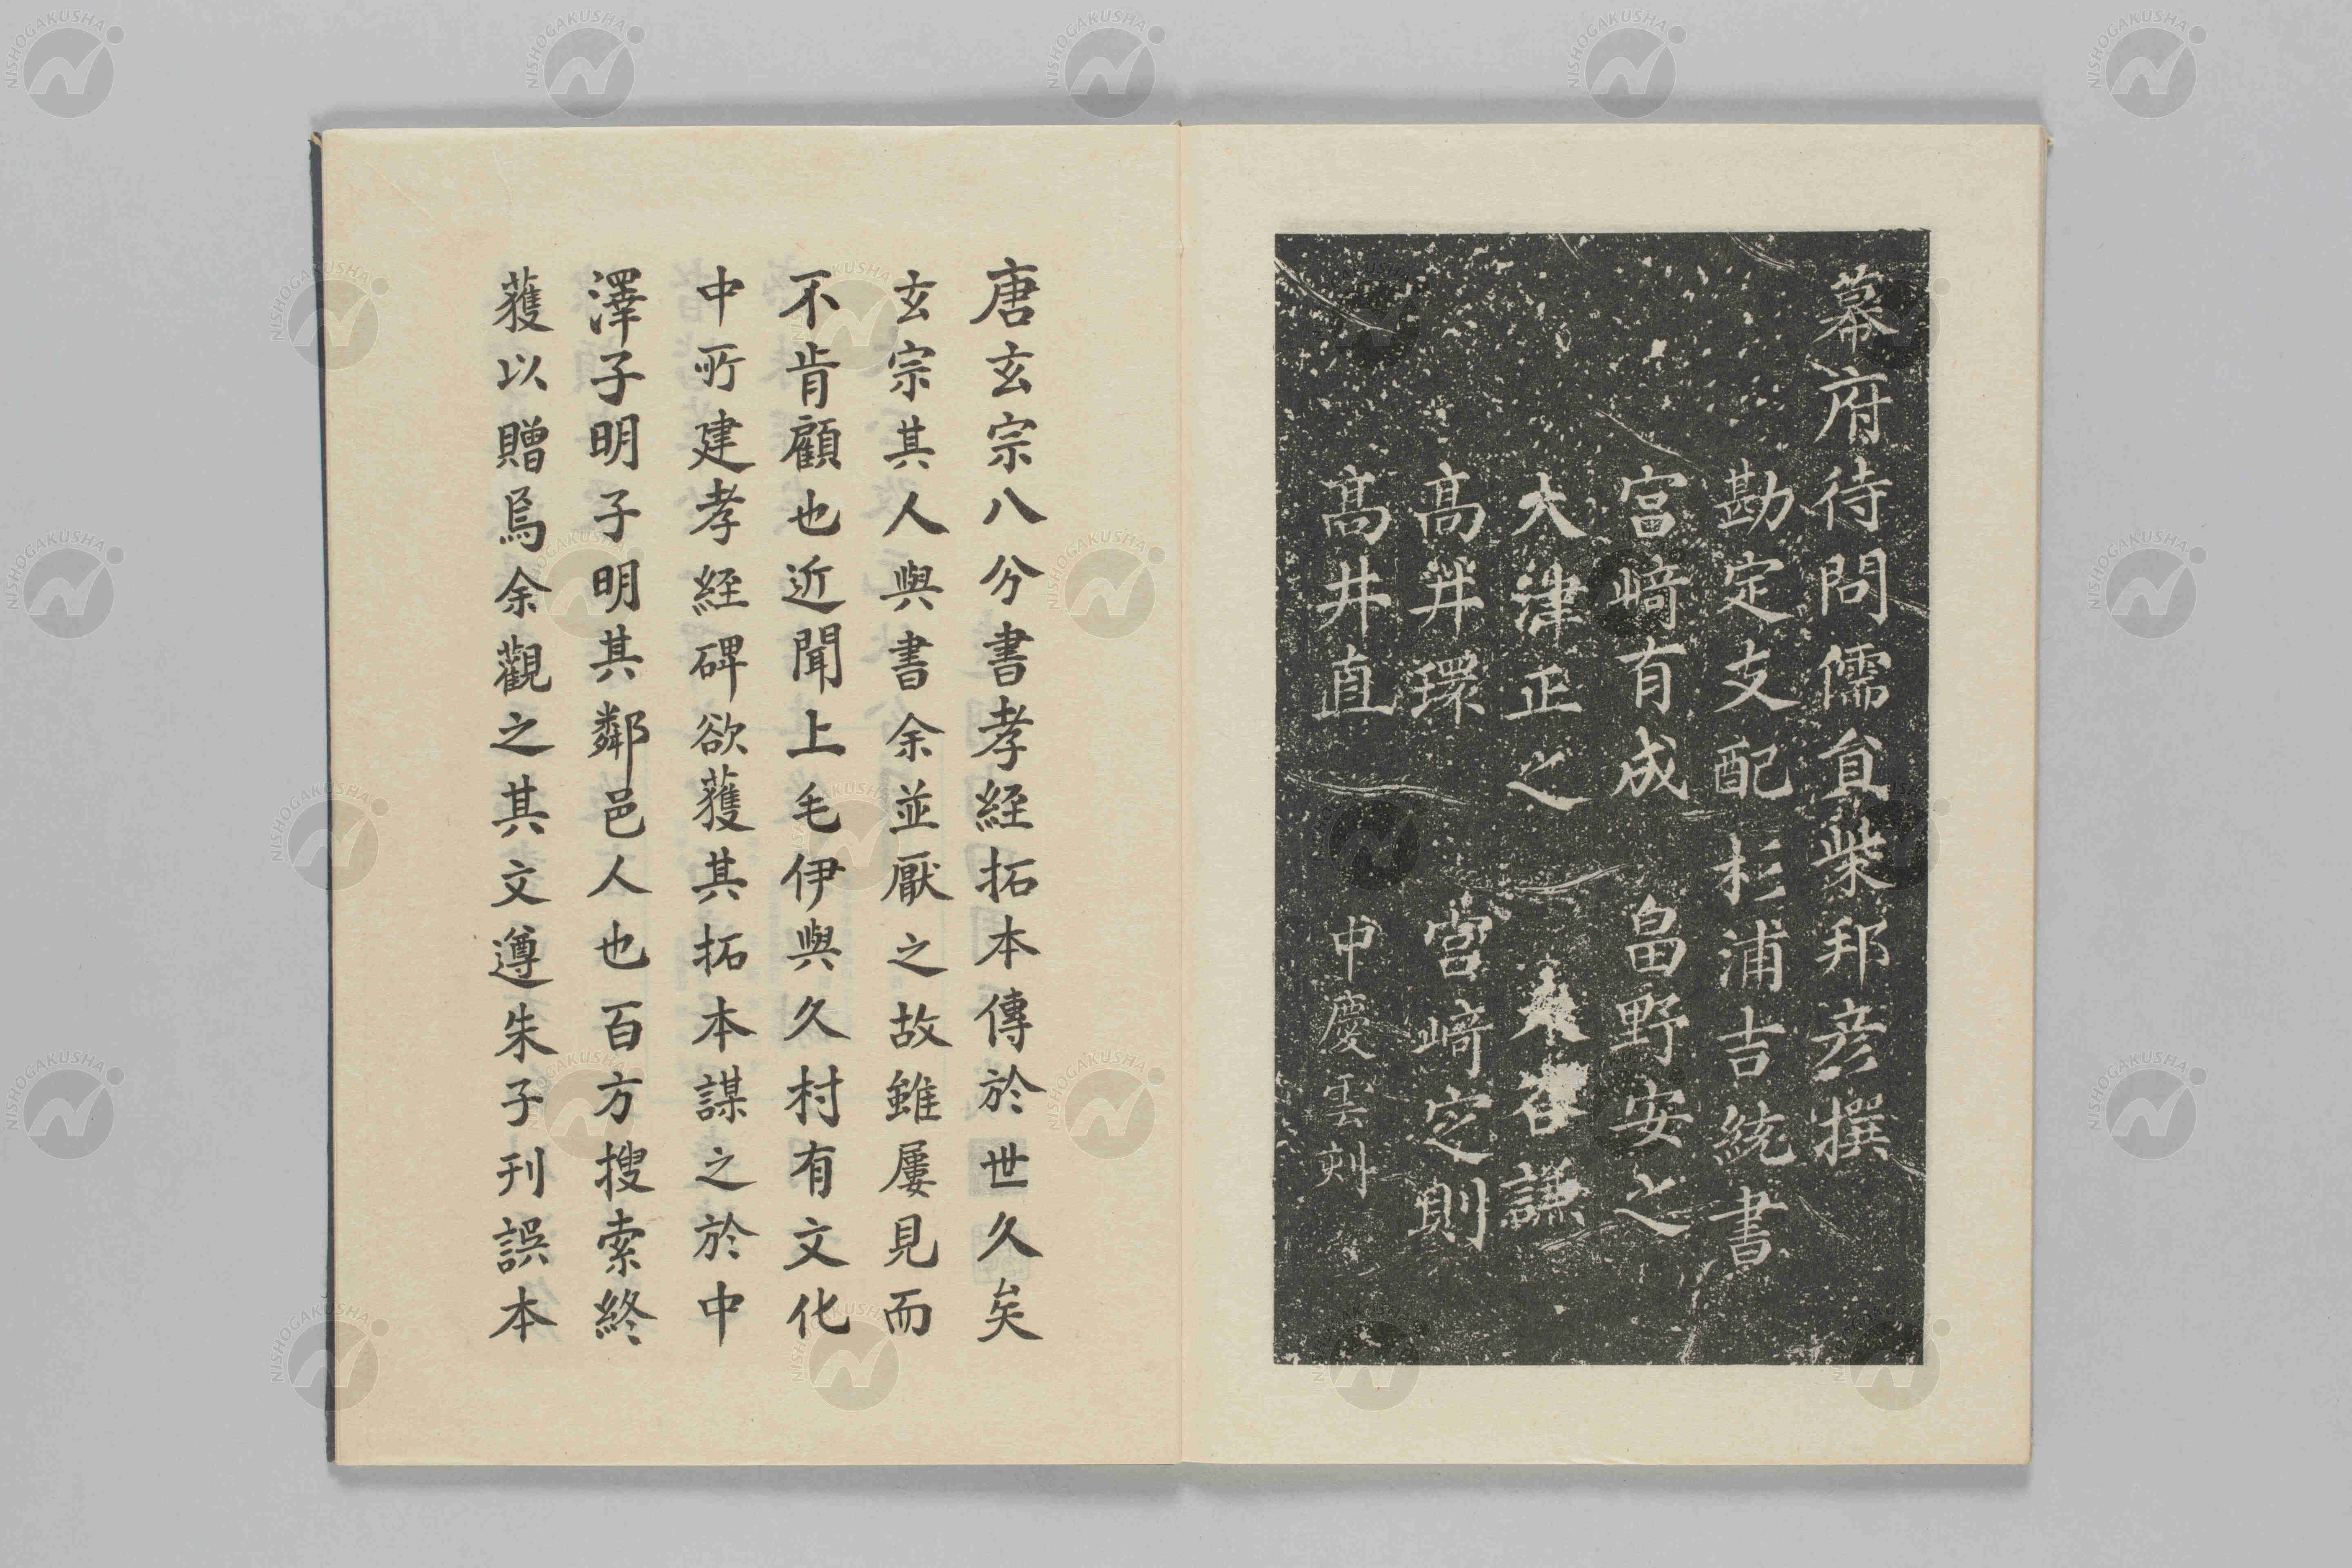 幕府待問儒員柴邦彦撰
勘定支配杉浦吉統書
宮﨑有成 畠野安之
大津正之 謙
髙井環 宮﨑定則
髙井直 中慶雲刻
唐玄宗八分書孝経拓本傳於世久矣
玄宗其人與書余並厭之故雖屢見而
不肯顧也近聞上毛伊與久村有文化
中所建孝経碑欲獲其拓本謀之於中
澤子明子明其鄰邑人也百方搜索終
獲以贈焉余觀之其文遵朱子刊誤本
NISHOGAKUSHA